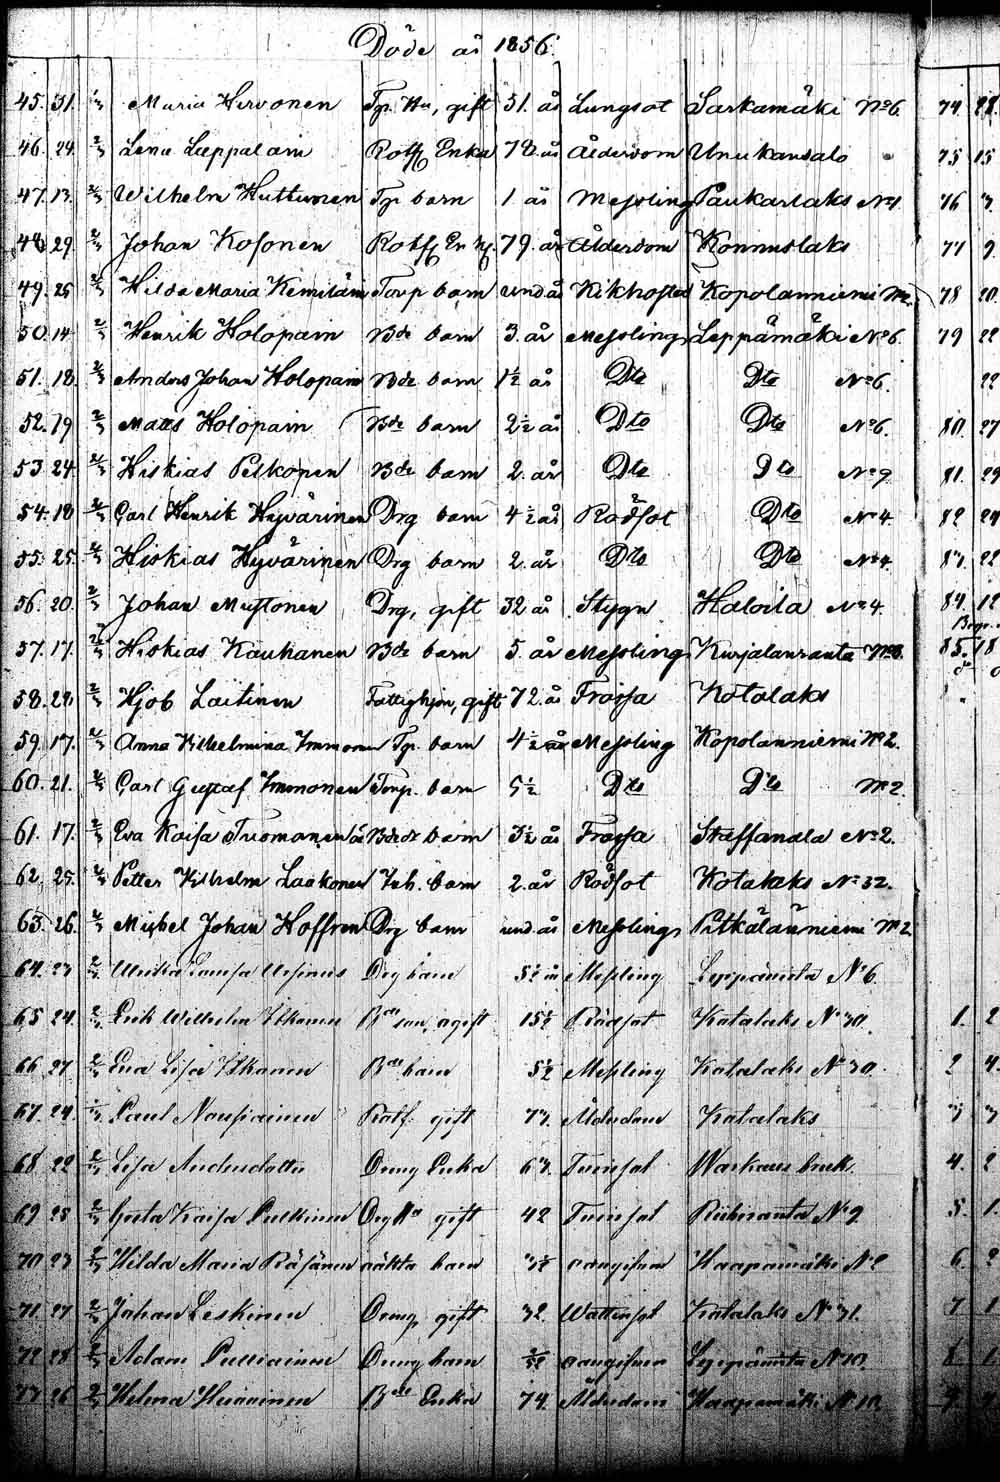 Döde år 1856.
45. 31. Maria Hirvonen Tp. Hu, gift 51. år Lungsot Sarkamäki No 6.
46. 24. 2/3 Lena Læppalain Rotf Enka 78. år Ålderdom Unnukansalo
47. 13. 2/3 Wilhelm Huttunen Tp barn 1 år Messling Paukarlaks No 1.
48 29. 2/3 Johan Kosonen Rotf Enkl. 79. år Ålderdom Konnuslaks
49. 25 2/3 Hilda Maria Kemiläin Torp barn und. år Kikhosta Kopolanniemi No 2.
50. 14 2/3 Henrik Holopain Bde barn 3. år Messling Leppämäki No 6.
51. 18. 2/3 Anders Johan Holopain Bde barn 1½ år Dto Dto No 6.
52. 19 2/3 Matts Holopain Bde barn 2½ år Dto Dto No 6.
53. 24. 2/3 Hiskias Pelkonen Bde barn 2. år Dto Dto No 9
54. 18 2/3 Carl Henrik Hyvärinen Drg barn 4½ år Rödsot Dto No 4.
55. 25. 2/3 Hiskias Hyvärinen Drg barn 2. år Dto Dto No 4.
56. 20. 2/3 Johan Mustonen Drg, gift 32 år Stygn Haloila No 4.
57. 17. 2/3 Hiskias Kaukanen Bde barn 5. år Messling Kurjalanranta No 8.
58. 28. 2/3 Hjob Laitinen Fattighjon, gift 72. år Frossa Kotalaks
59. 17. 2/3 Anna Vilhelmina Immonen Tp. barn 4½ år Messling Kopolanniemi No 2.
60. 21. 2/3 Carl Gustaf Immonen Torp. barn 5½ Dto Dto No 2
61. 17. 2/3 Eva Kaisa Tuomanen barn 3½ år Frossa Staffansla No 2.
62. 25. 2/3 Petter Vilhelm Laakonen Inh. barn 2. år Rödsot Kotalaks No 32.
63. 26. 2/3 Mickel Johan Hoffren Drg barn und. år Messling Pitkälänniemi No 2
64. 23 2/3 Ulrika Lovisa Ursinus Drg barn 5½ år Messling Leppämäki No 6.
65 24. 2/3 Erik Wilhelm Itkonen Bde son, ogift 15½ Rödsot Kotalaks No 30.
66 27 2/3 Eva Lisa Itkonen Bde barn 5½ Messling Kotalaks No 30.
67. 24. 2/3 Paul Nousiainen Rotf. gift 73. Ålderdom Kotalaks
68 22 2/3 Lisa Andersdotter Dreng Enka 63. Tvinsot Warkaus bruk.
69 25 2/3 Greta Kaisa Pulkinen Drg Hu gift 42 Tvinsot Riihiranta No 9
70 23 2/3 Hilda Maria Räsänen oäkta barn oangifven Haapamäki No 2
71. 27 2/3 Johan Leskinen Dreng gift 32. Wattusot Kotalaks No 31.
72 28 2/3 Adam Pulliainen Dreng barn oangifven Leppämäki No 10
73 26 2/3 Helena Heiskainen Bde Enka 74. Ålderdom Haapamäki No 10.
74. 28.
75 15
76 3.
77 9.
78 20.
79 22
22
80. 27
81. 29
82 24
83. 22
84. 12
85. 18
1. 2
2 4.
3 3
4. 2
5. 1.
6. 2
7. 1
8. 1
9.